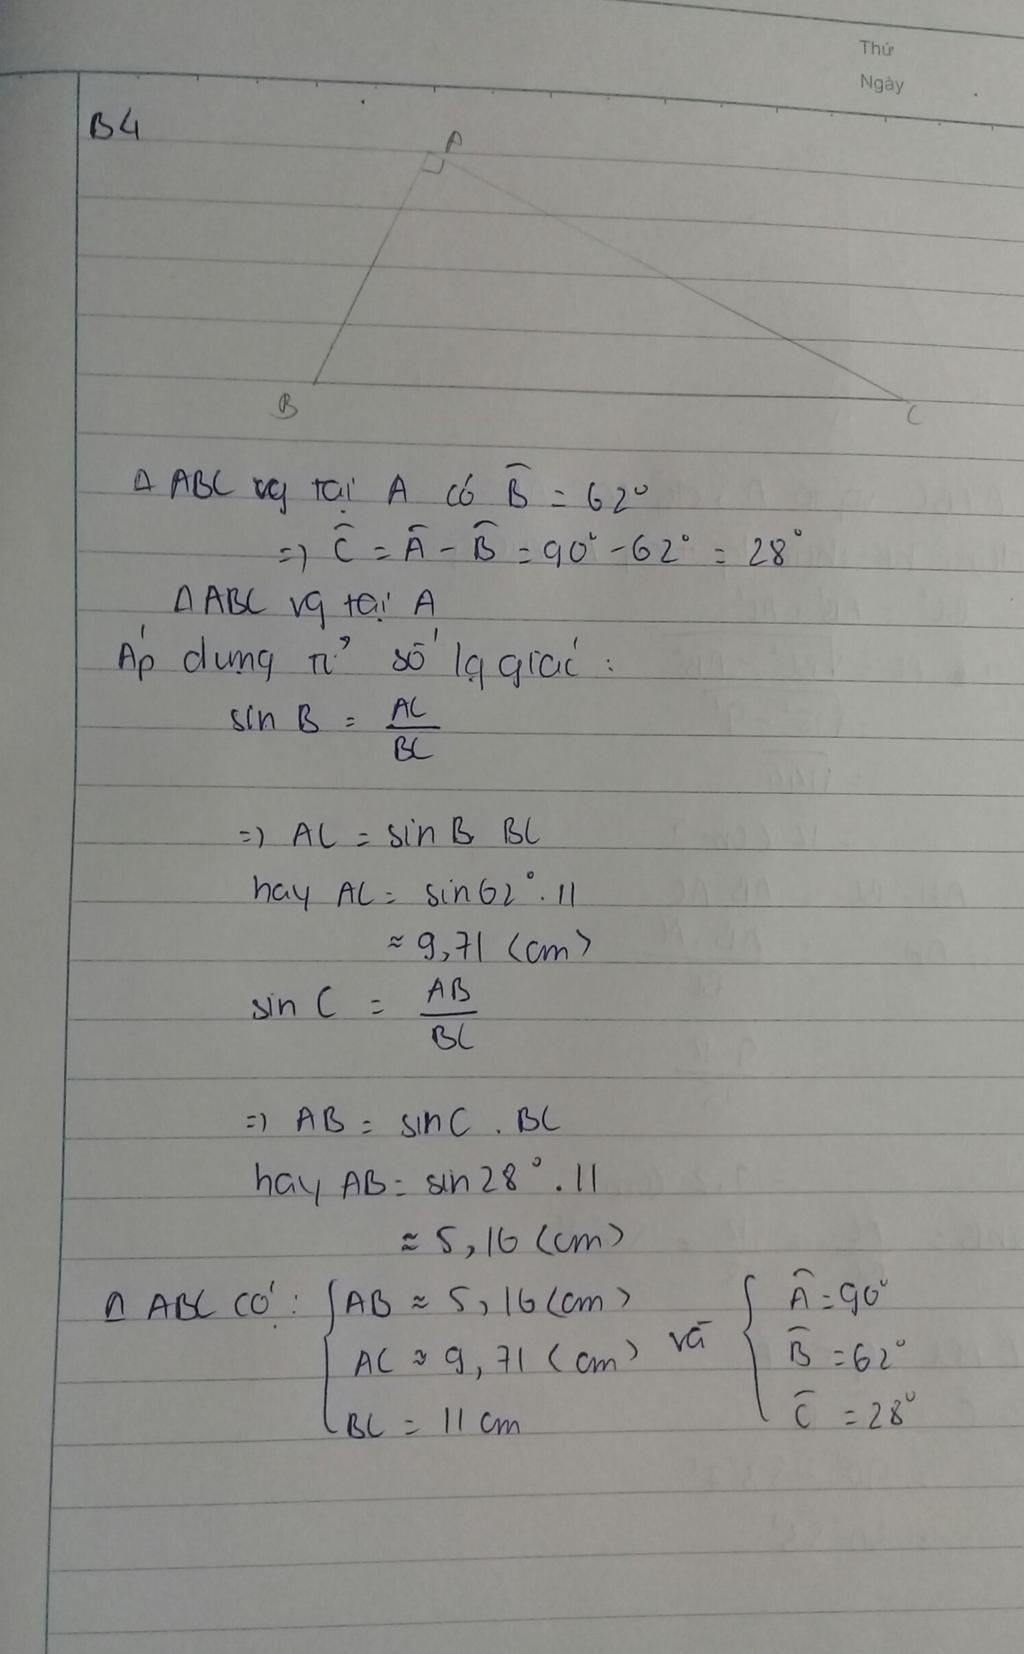 Thứ
Ngày
B4
A
B
C
Δ ABC vg tại A có B̂ = 62°
=> Ĉ = Â - B̂ = 90° - 62° = 28°
Δ ABC vg tại A
Áp dụng tỉ số lg giác :
sin B = AC/BC
=> AC = sin B BC
hay AC = sin62° . 11
≈ 9,71 (cm)
sin C = AB/BC
=> AB = sin C . BC
hay AB = sin 28° . 11
≈ 5,16 (cm)
Δ ABC có : { AB ≈ 5,16 (cm) và { Â = 90°
AC ≈ 9,71 (cm) B̂ = 62°
BC = 11 cm Ĉ = 28°